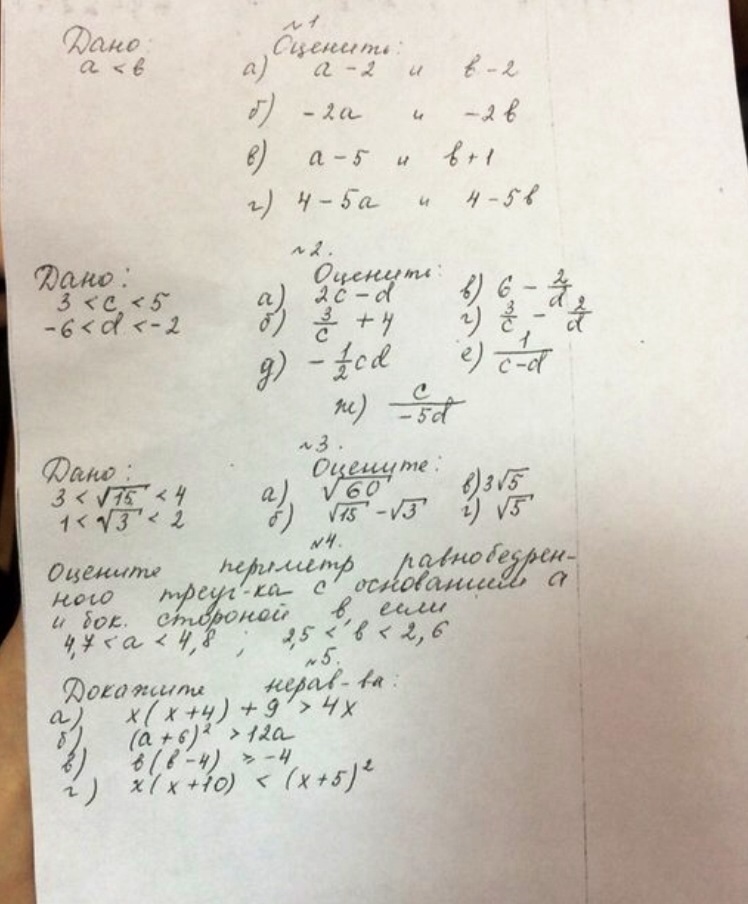 №1
Дано: Оценить:
a < b а) a - 2 и b - 2
б) -2a и -2b
в) a - 5 и b + 1
г) 4 - 5a и 4 - 5b
№2.
Дано: Оценить:
3 < c < 5 а) 2c - d в) 6 - 2/d
-6 < d < -2 б) 3/c + 4 г) 3/c - 2/d
д) - 1/2 cd е) 1/(c-d)
ж) c/(-5d)
№3.
Дано: Оцените:
3 < √15 < 4 а) √60 в) 3√5
1 < √3 < 2 б) √15 - √3 г) √5
№4.
Оцените периметр равнобедрен-
ного треуг-ка с основанием a
и бок. стороной b, если
4,7 < a < 4,8 ; 2,5 < b < 2,6
№5.
Докажите нерав-ва:
а) x(x+4) + 9 > 4x
б) (a+6)² > 12a
в) b(b-4) ≥ -4
г) x(x+10) < (x+5)²